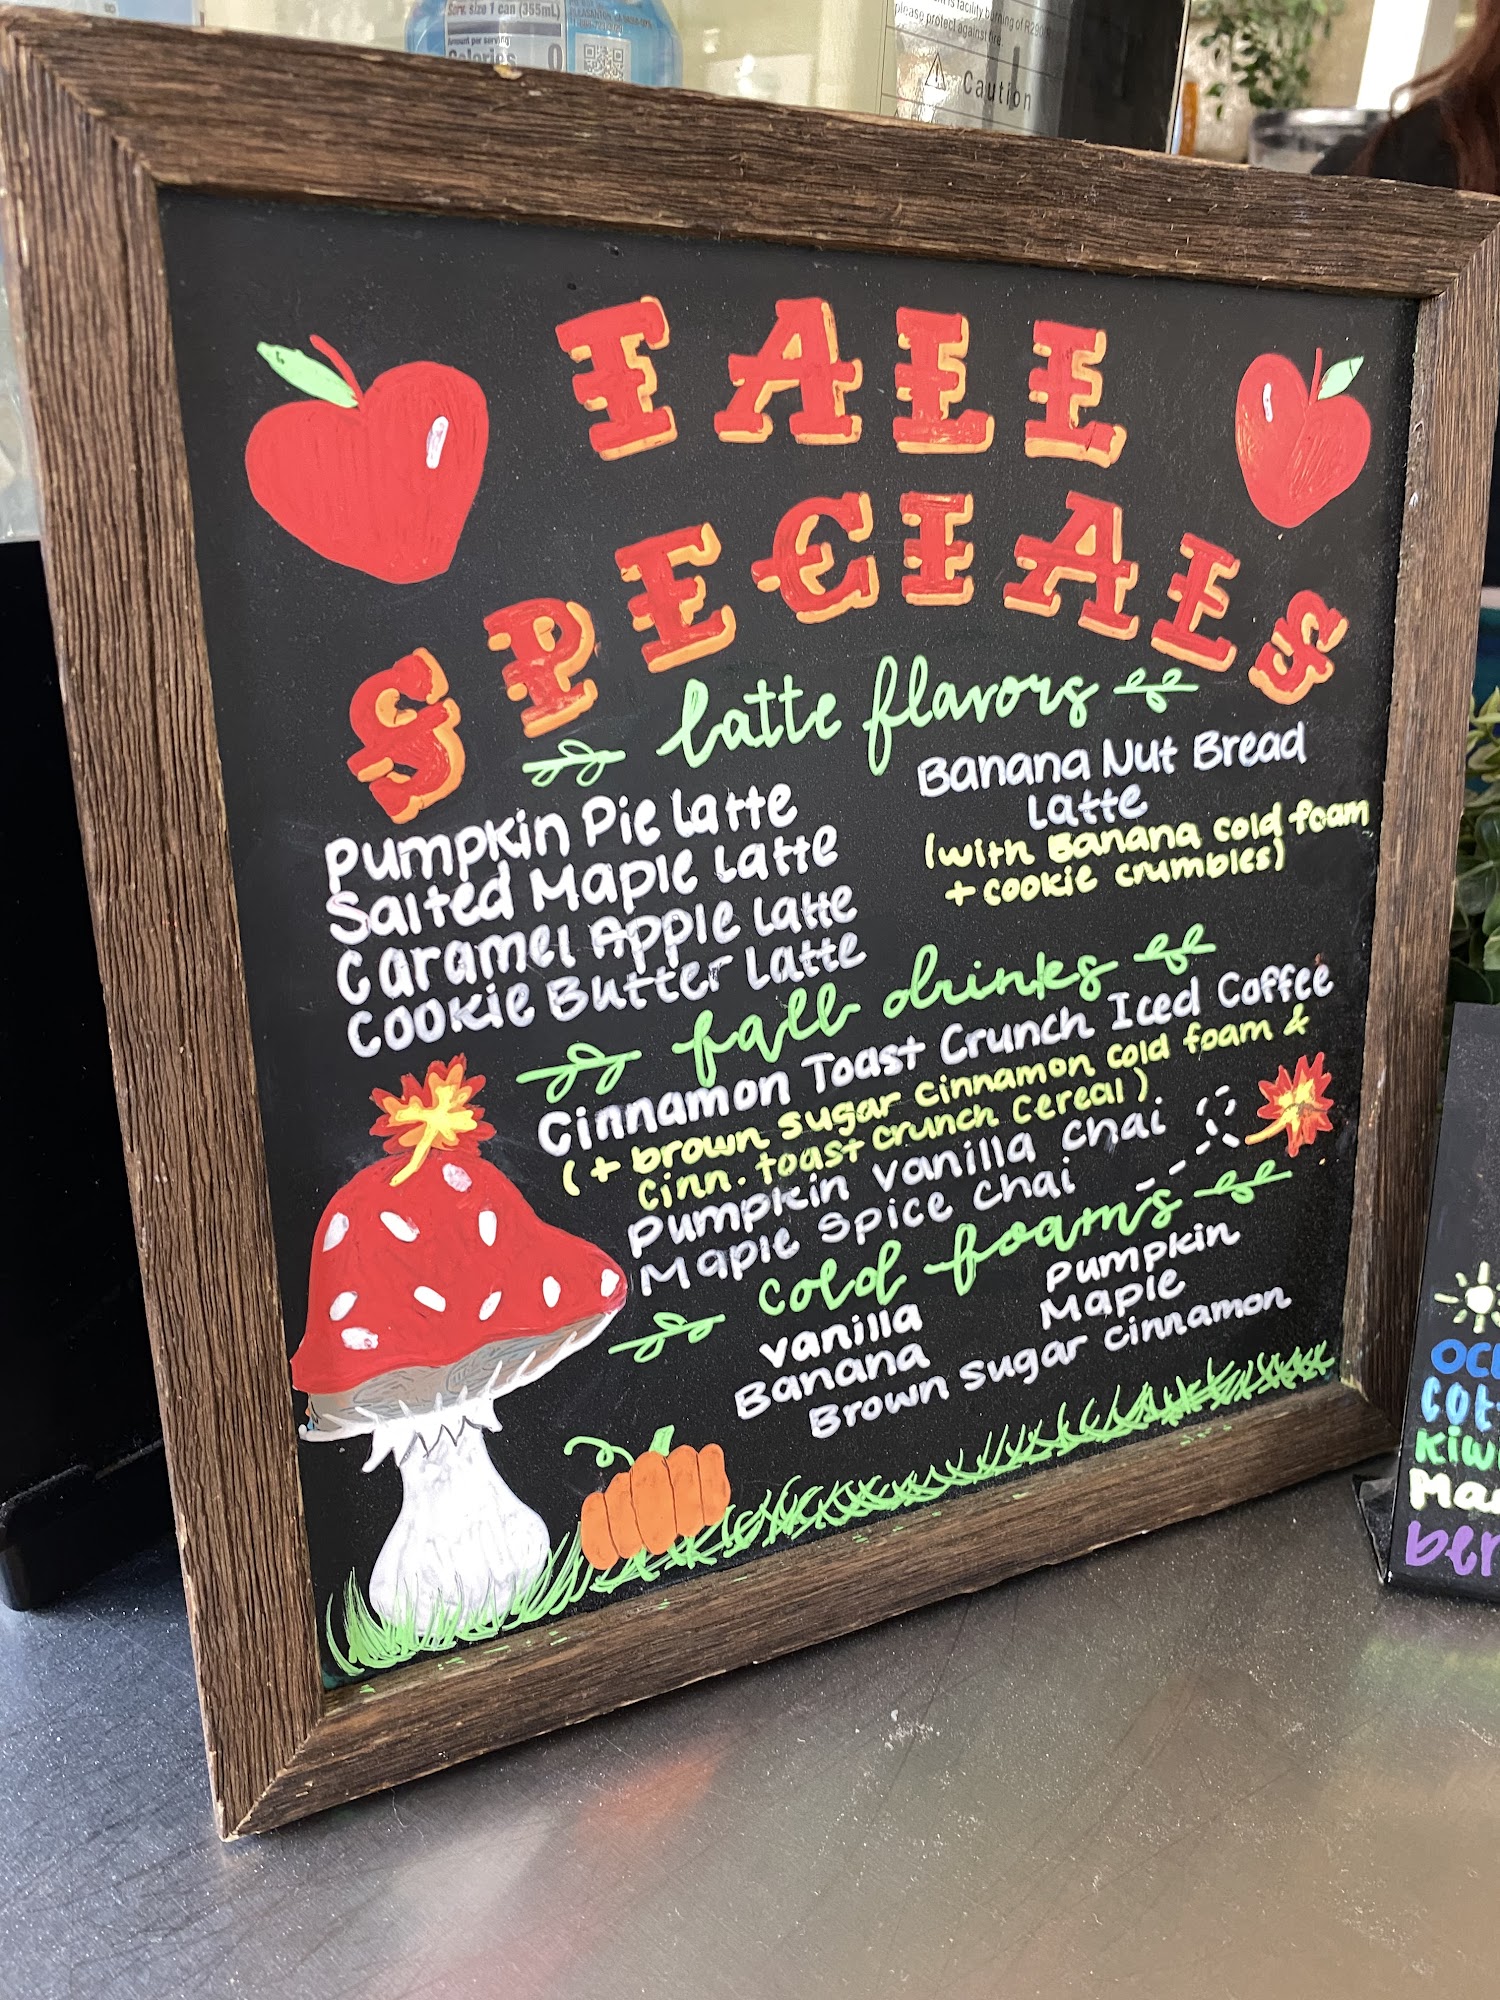 Serv. size 1 can (355mL)
Amount per serving
Calories 0
please protect against fire.
Caution
FALL
SPECIALS
latte flavors
Pumpkin Pie Latte
Salted Maple Latte
Caramel Apple Latte
Cookie Butter Latte
Banana Nut Bread
Latte
(with Banana cold foam
+ cookie crumbles)
fall drinks
Cinnamon Toast Crunch Iced Coffee
(+ brown sugar cinnamon cold foam &
cinn. toast crunch cereal)
Pumpkin Vanilla Chai
Maple Spice Chai
cold foams
Vanilla
Banana
Pumpkin
Maple
Brown Sugar Cinnamon